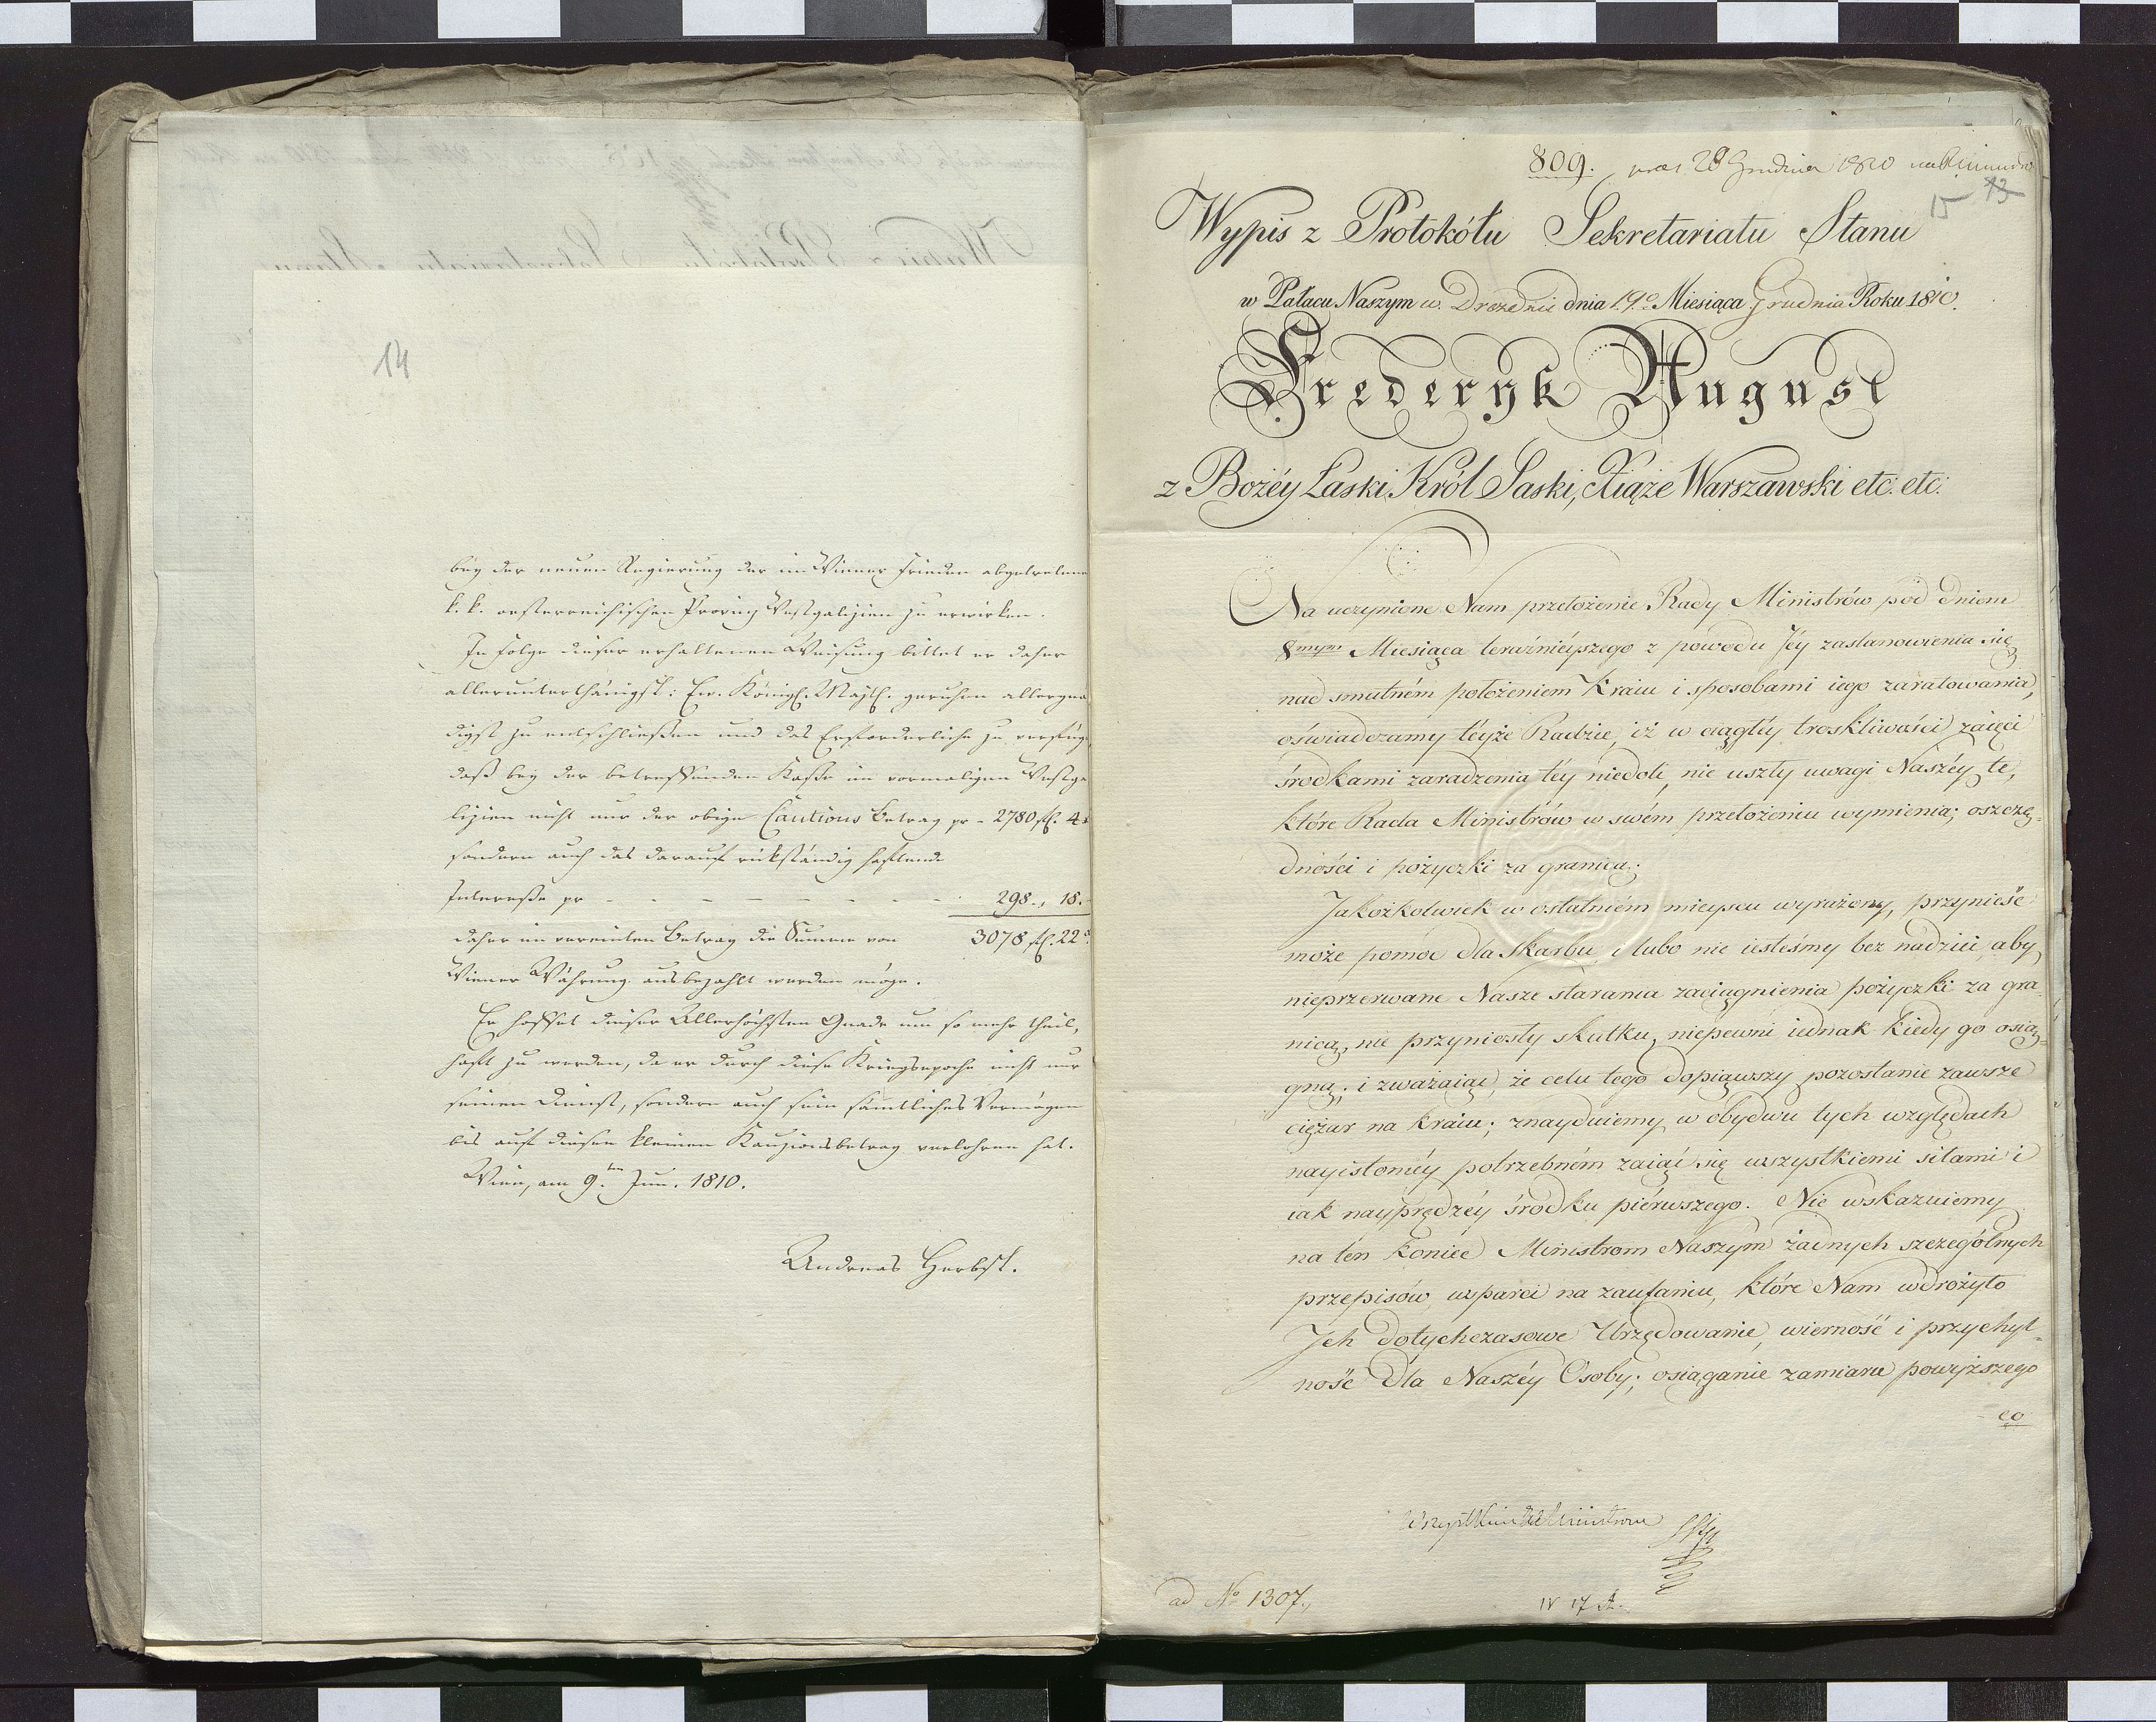 14
bey der neuen Regierung der im Wiener Frieden abgetretene
k. k. oesterreichischen Provinz Westgalizien zu erwirken.
In Folge dieser erhaltenen Weisung bittet er daher
allerunterthänigst: Eu. Königl. Majest. geruhen allergnä
digst zu entschließen und das Erforderliche zu verfüg
daß bey der betreffenden Kasse im vormaligen Westga
lizien nicht nur der obige Cautions Betrag pr - 2780 fl. 4
sondern auch das darauf rükständig haftende
Interesse pr - - - - - - - - 298 ,, 18.
daher im vereinten Betrag die Summe von 3078 fl. 22
Wiener Währung ausbezahlt werden möge.
Er hoffet dieser Allerhöchsten Gnade um so mehr theil,
haft zu werden, da er durch diese Kriegsepoche nicht nur
seinen Dienst, sondern auch sein sämtliches Vermögen
bis auf diesen kleinen Kauzionsbetrag verlohren hat.
Wien, am 9ten Jun. 1810.
Andreas Herbst.
809. 28 Grudnia 1810
15 13
Wypis z Protokółu Sekretariatu Stanu
w Pałacu Naszym w Dreźnie dnia 19o Miesiąca Grudnia Roku 1810.
Frederyk August
z Bożéy Łaski Król Saski, Xiąże Warszawski etc. etc.
Na uczynione Nam przełożenie Rady Ministrów pod dniem
8mym Miesiąca teraźnieyszego z powodu Jéy zastanowienia się
nad smutném położeniem Kraiu i sposobami iego zaratowania,
oświadczamy téyże Radzie, iż w ciągłéy troskliwości zaięci
środkami zaradzenia téy niedoli, nie uszły uwagi Naszéy te,
które Rada Ministrów w swém przełożeniu wymienia; oszczę=
dności i pożyczki za granicą.
Jakożkolwiek w ostatniém mieyscu wyrażony, przynieść
może pomoc dla Skarbu, i lubo nie iesteśmy bez nadziei, aby
nieprzerwane Nasze starania zaciągnienia pożyczki za gra=
nicą, nie przyniosły skutku, niepewni iednak kiedy go osią=
gną; i zważaiąc, że celu tego dopiąwszy pozostanie zawsze
ciężar na Kraiu; znayduiemy w obydwu tych względach
nayistotniéy potrzebném zaiąć się wszystkiemi siłami i
iak nayprędzéy środku piérwszego. Nie wskazuiemy
na ten koniec Ministrom Naszym żadnych szczególnych
przepisów, wsparci na zaufaniu, które Nam wdrożyło
Jch dotychczasowe Urzędowanie, wierność i przychyl=
ność dla Naszéy Osoby; osiąganie zamiaru powyższego
co
Wszystkim Ministrom
ad No 1307.